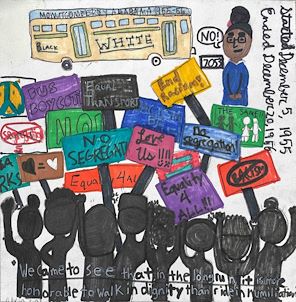 MONTGOMERY ALABAMA
BLACK
WHITE
NO!
7053
Started December 5, 1955
Ended December 20, 1956
BUS
BOYCOTT
EQUALITY
TRANSPORT
End
Racism!
NO!
NO
SEGREGATION
Love
Us !!!
No
segregation
SAME
Equality 4 ALL
Equality
4
ALL!!!
RACISM
"We came to see that, in the long run, it is more
honorable to walk in dignity than ride in humiliation